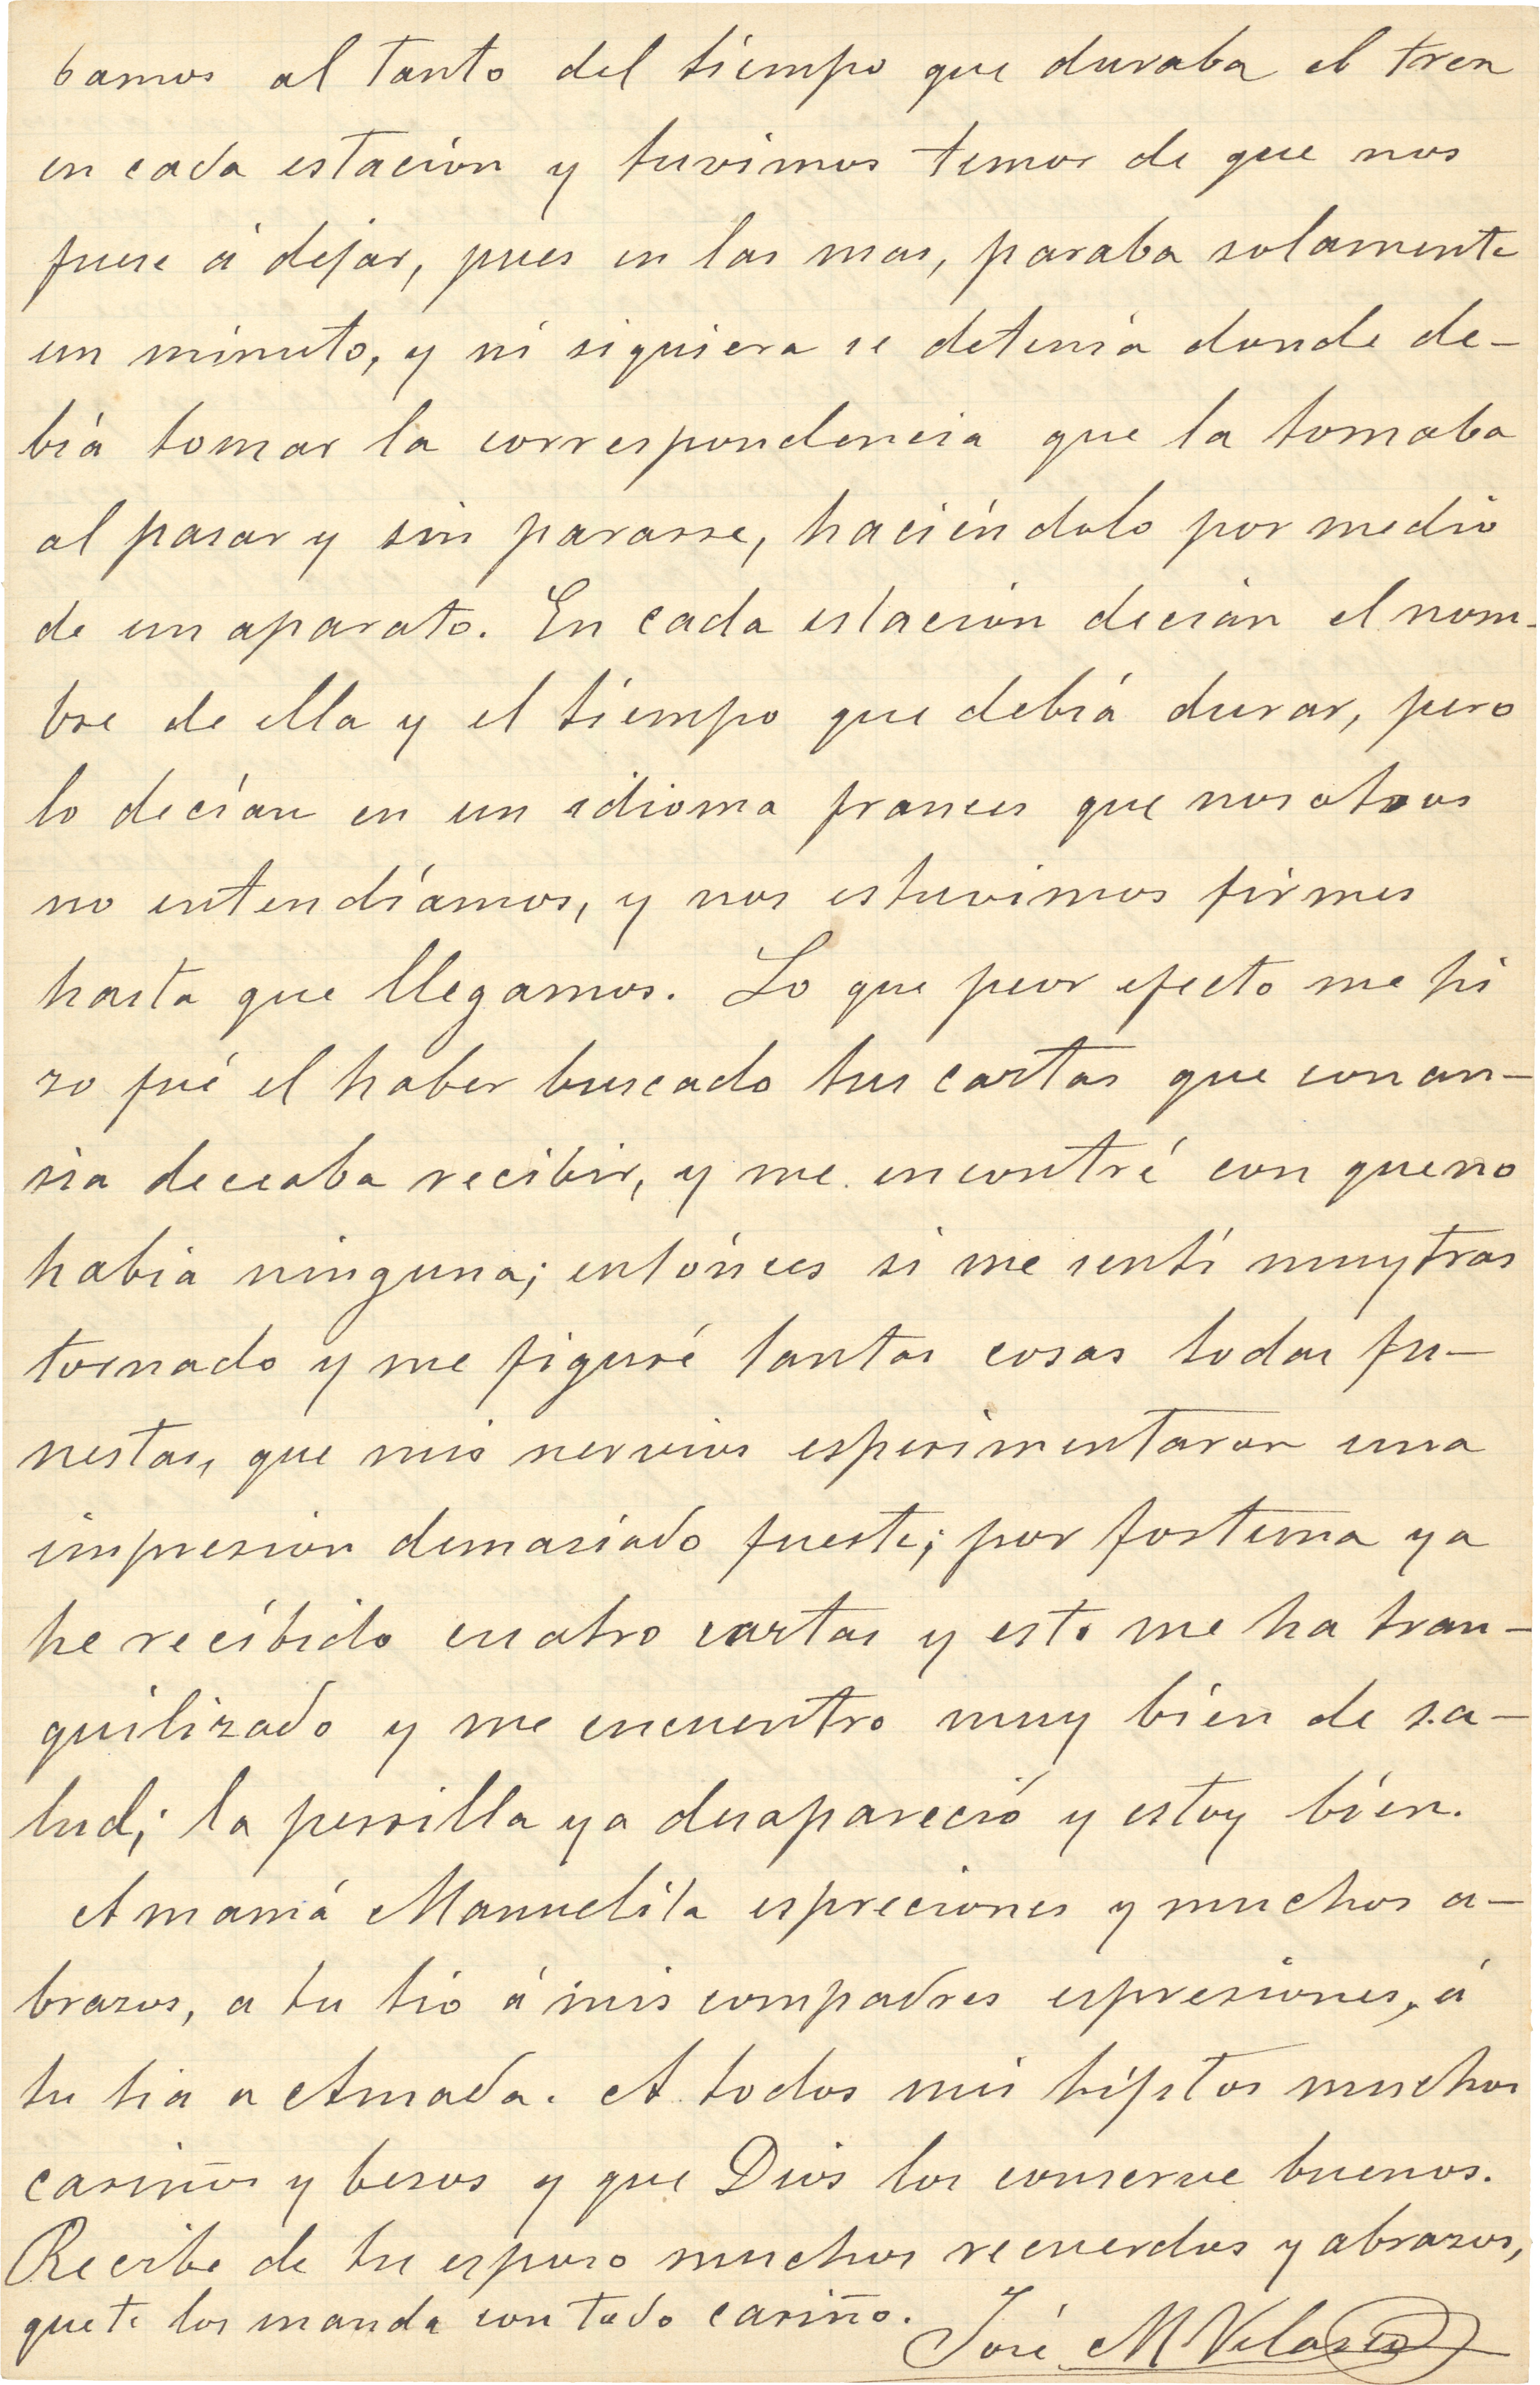 bamos al tanto del tiempo que duraba el tren
en cada estación y tuvimos temor de que nos
fuese á dejar, pues en las mas, paraba solamente
un minuto, y ni siquiera se detenía donde de-
biá tomar la correspondencia que la tomaba
al pasar y sin pararse, haciéndolo por medio
de un aparato. En cada estación decián el nom-
bre de ella y el tiempo que debiá durar, pero
lo decían en un idioma frances que nosotros
no entendíamos, y nos estuvimos firmes
hasta que llegamos. Lo que peor efecto me hi
zo fué el haber buscado tus cartas que con an-
sia deceaba recibir, y me encontré con que no
habia ninguna; entónces si me sentí muy tras
tornado y me figuré tantas cosas todas fu-
nestas, que mis nervios esperimentaron una
impresion demasiado fuerte; por fortuna ya
he recíbido cuatro cartas y esto me ha tran-
quilizado y me encuentro muy bién de sa-
lud; la perrilla ya desapareció y estoy bién.
A mamá Manuelita espreciones y muchos a-
brazos, a tu tio á mis compadres espresiones, á
tu tia a Amada. A todos mis hijitos muchos
cariños y besos y que Dios los conserve buenos.
Recibe de tu esposo muchos recuerdos y abrazos,
que te los manda con todo cariño.
José M Velasco